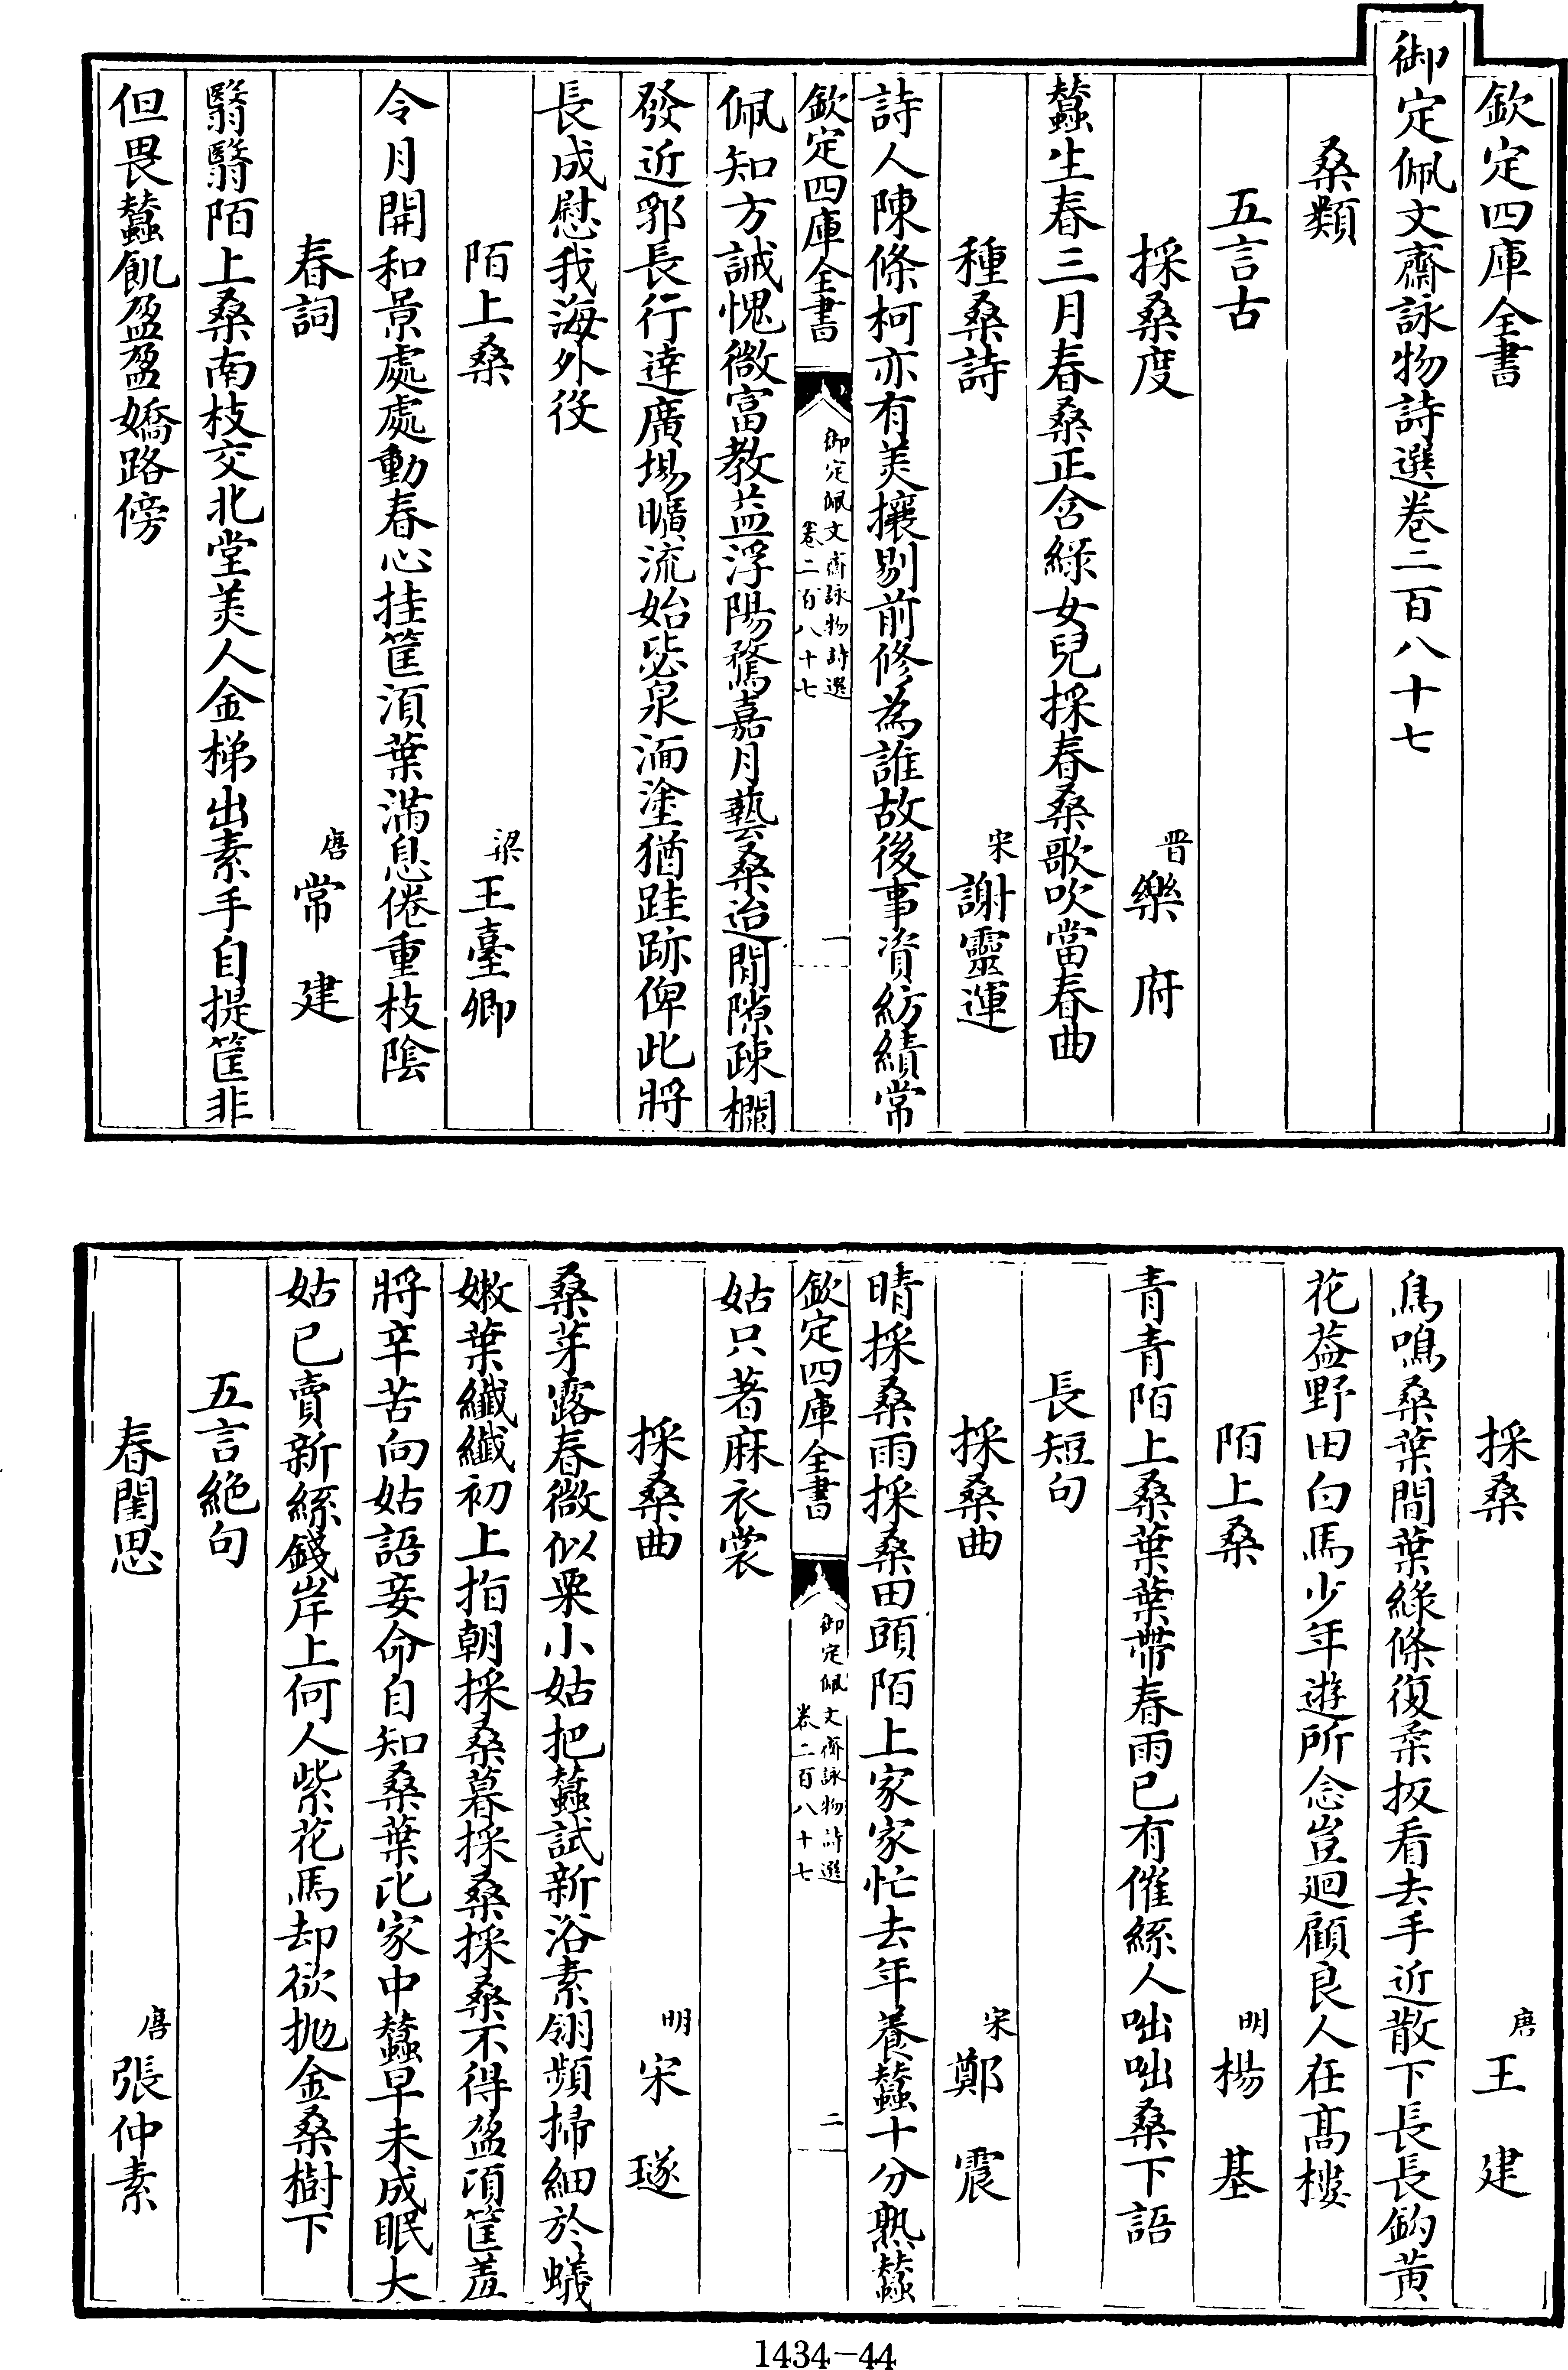 欽定四庫全書
御定佩文齋詠物詩選卷二百八十七
桑類
五言古
採桑度　晉樂府
蠶生春三月春桑正含綠女兒採春桑歌吹當春曲
種桑詩　宋謝靈運
詩人陳條柯亦有美攘剔前修為誰故後事資紡績常
欽定四庫全書　御定佩文齋詠物詩選　卷二百八十七　一
佩知方誡愧微富教益浮陽騖嘉月藝桑迨閒隙疎欄
發近郛長行達廣場曠流始毖泉湎塗猶跬跡俾此將
長成慰我海外役
陌上桑　梁王臺卿
令月開和景處處動春心挂筐須葉滿息倦重枝陰
春詞　唐常建
翳翳陌上桑南枝交北堂美人金梯出素手自提筐非
但畏蠶飢盈盈嬌路傍
採桑　唐王建
鳥鳴桑葉間葉綠條復柔扳看去手近散下長長鈎黃
花葢野田白馬少年遊所念豈迴顧良人在髙樓
陌上桑　明楊基
青青陌上桑葉葉帶春雨已有催絲人咄咄桑下語
長短句
採桑曲　宋鄭震
晴採桑雨採桑田頭陌上家家忙去年養蠶十分熟蠶
欽定四庫全書　御定佩文齋詠物詩選　卷二百八十七　二
姑只著麻衣裳
採桑曲　明宋璲
桑芽露春微似粟小姑把蠶試新浴素翎頻掃細於蟻
嫩葉纖纖初上指朝採桑暮採桑採桑不得盈頃筐羞
將辛苦向姑語妾命自知桑葉比家中蠶早未成眠大
姑已賣新絲錢岸上何人紫花馬却欲抛金桑樹下
五言絶句
春閨思　唐張仲素
1434-44